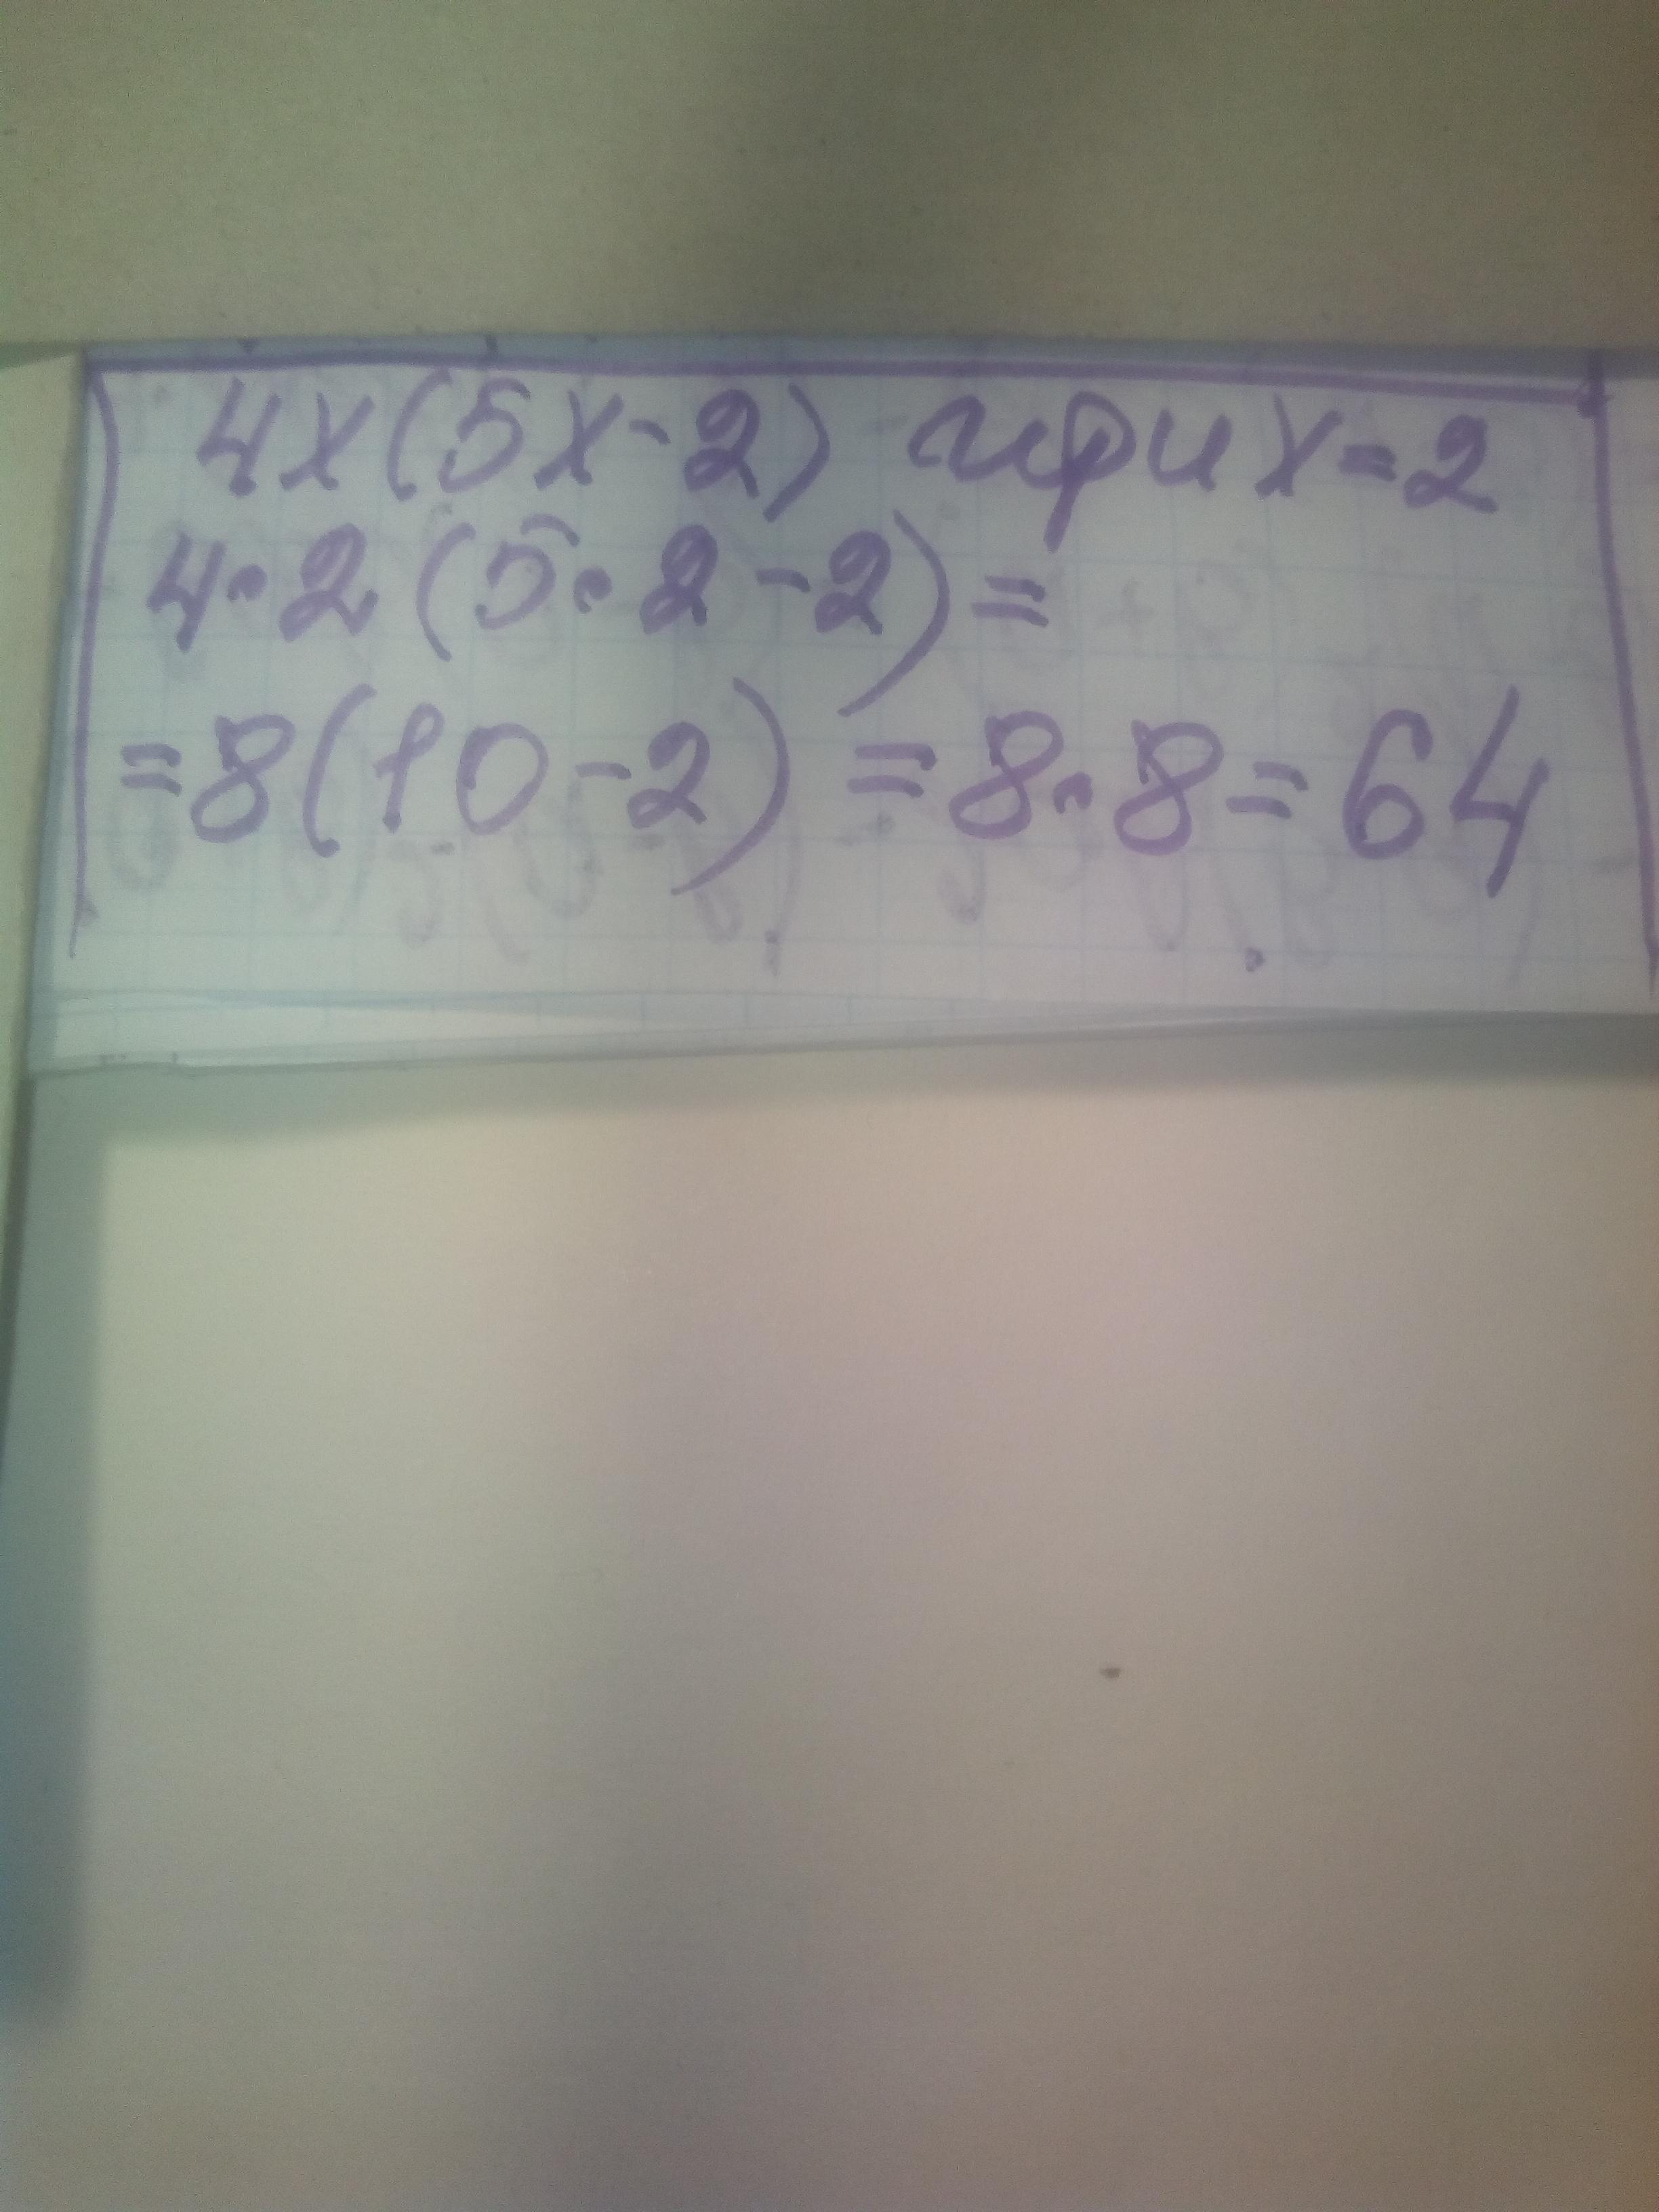 4x(5x-2) при x=2
4·2(5·2-2)=
=8(10-2)=8·8=64